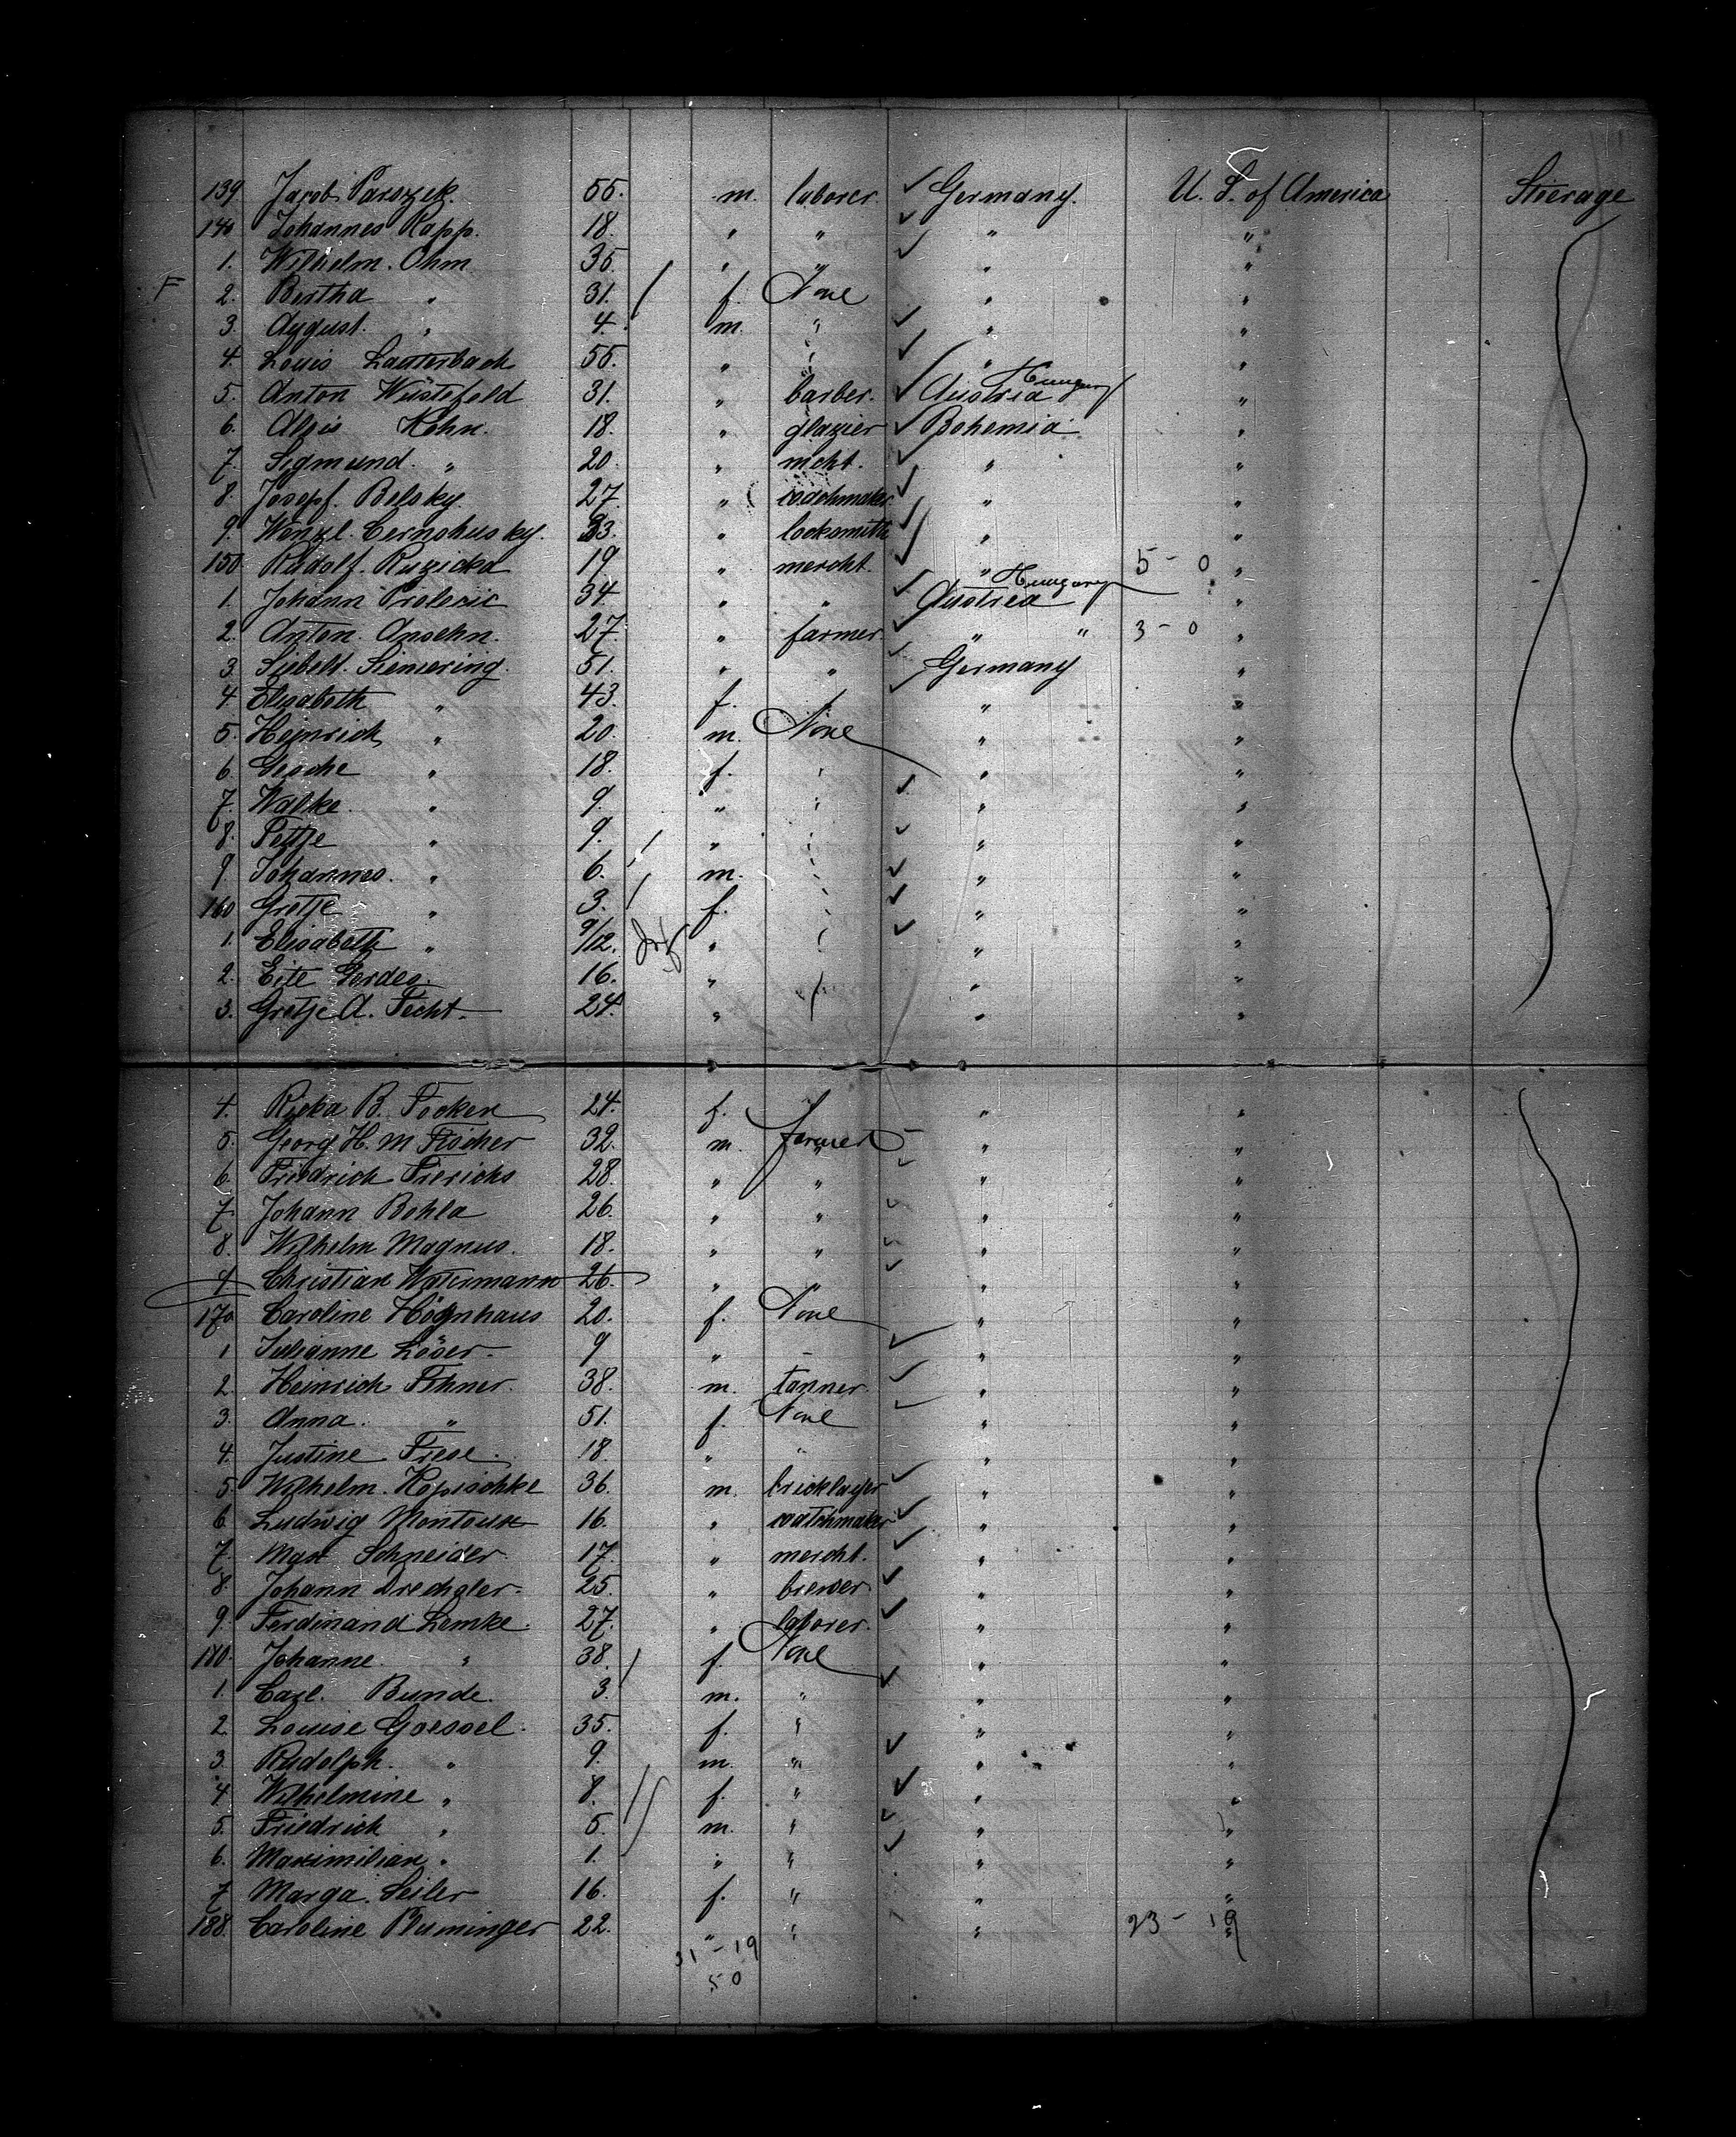 139 Jacob Parszek. 55. m. laborer. ✓ Germany. U. S. of America Steerage
140 Johannes Rapp. 18. " " ✓ " "
1. Wilhelm. Ohm 35. " " ✓ " "
F 2. Bertha " 31. f. None " "
3. August. " 4. m. " ✓ " "
4. Louis Lauterbach 55. " " ✓ " "
5. Anton Wüstefeld 31. " barber. ✓ Austria Hungary "
6. Alois Kohn. 18. " glazier ✓ Bohemia "
7. Sigmund. " 20. " mcht. ✓ " "
8. Josepf. Belsky. 27. " watchmaker ✓ " "
9. Wenzl. Cernohusky. 33. " locksmith ✓ " "
150 Rudolf. Ruzicka 19 " mercht. ✓ " 5 - 0 "
1. Johann 34. " " ✓ Austria Hungary "
2. Anton. Ansehn. 27. " farmer. ✓ " " 3 - 0 "
3. Siebelt. Siemering. 51. " " ✓ Germany "
4 Elisabeth " 43. f. ✓ " "
5. Heinrich " 20. m. None " "
6. Gesche " 18. f. " " "
7. Wapke. " 9. " " ✓ " "
8. Pettje " 9. " " ✓ " "
9 Johannes. " 6. m. " ✓ " "
160 Gretje " 3. f. " ✓ " "
1. Elisabeth " 9/12. inf " " ✓ " "
2. Eite Gerdes 16. " " "
3. Gretje A. Fecht. 24. " " "
4. Ricka B. Focken 24. f. " "
5. Georg H. M Fischer 32. m. farmer " "
6. Friedrich Frerichs 28. " " ✓ " "
7. Johann Bohla 26. " " ✓ " "
8. Wilhelm Magnus. 18. " " " "
9 Christian Watermann 26. " " ✓ " "
170 Caroline 20. f. None " "
1 Julianne Löser. 9 " ✓ " "
2. Heinrich Fehner. 38. m. tanner. ✓ " "
3. Anna. " 51. f. None ✓ " "
4. Justine Frese. 18. " " " "
5. Wilhelm. Kopischke 36. m. bricklayer ✓ " "
6. Ludwig Montoux 16. " watchmaker ✓ " "
7. Max Schneider. 17. " mercht. ✓ " "
8. Johann Drechsler. 25. " brewer. ✓ " "
9. Ferdinand Lemke. 27. " laborer. ✓ " "
180. Johanne. " 38. f. None " "
1. Carl. Bunde. 3. m. " ✓ " "
2. Louise Goessel. 35. f. " " "
3. Rudolph. " 9. m. " ✓ " "
4 Wilhelmine " 8. f. " ✓ " "
5. Friedrich " 5. m. " ✓ " "
6. Maximilian " 1. " " ✓ " "
7 Marga. Seiler 16. f. " " "
188. Caroline Bluminger 22. " " " 23 - 19 "
31 - 19
50